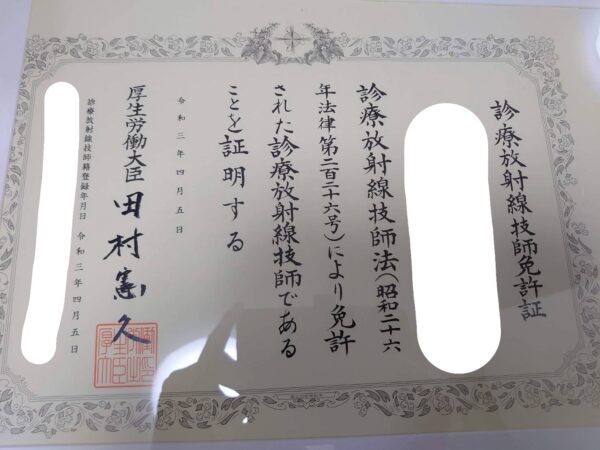 診療放射線技師免許証
診療放射線技師法(昭和二十六
年法律第二百二十六号)により免許
された診療放射線技師である
ことを証明する
令和三年四月五日
厚生労働大臣 田村憲久
診療放射線技師籍登録年月日 令和三年四月五日